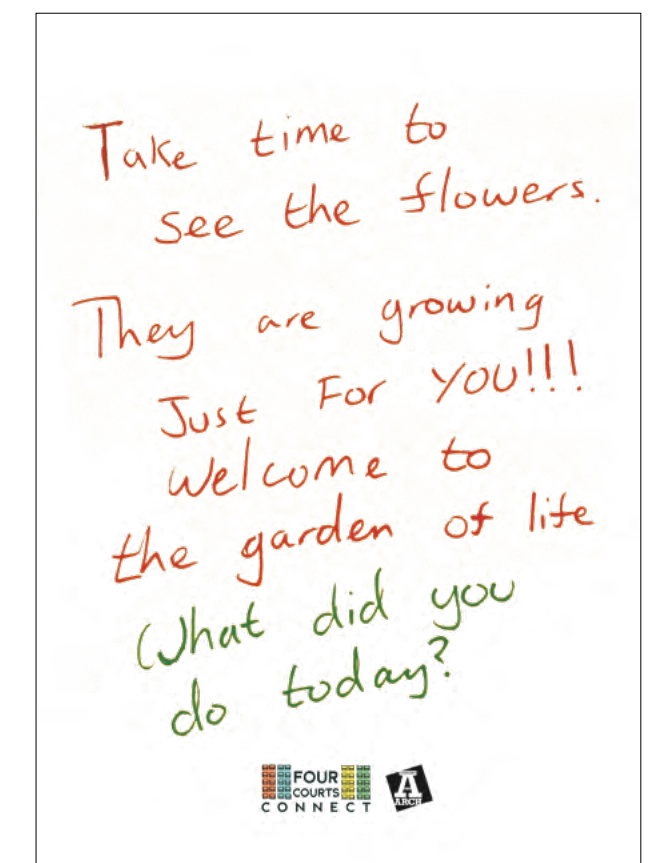 Take time to
see the flowers.
They are growing
Just For YOU!!!
Welcome to
the garden of life
What did you
do today?
FOUR
COURTS
CONNECT
A
ARCH